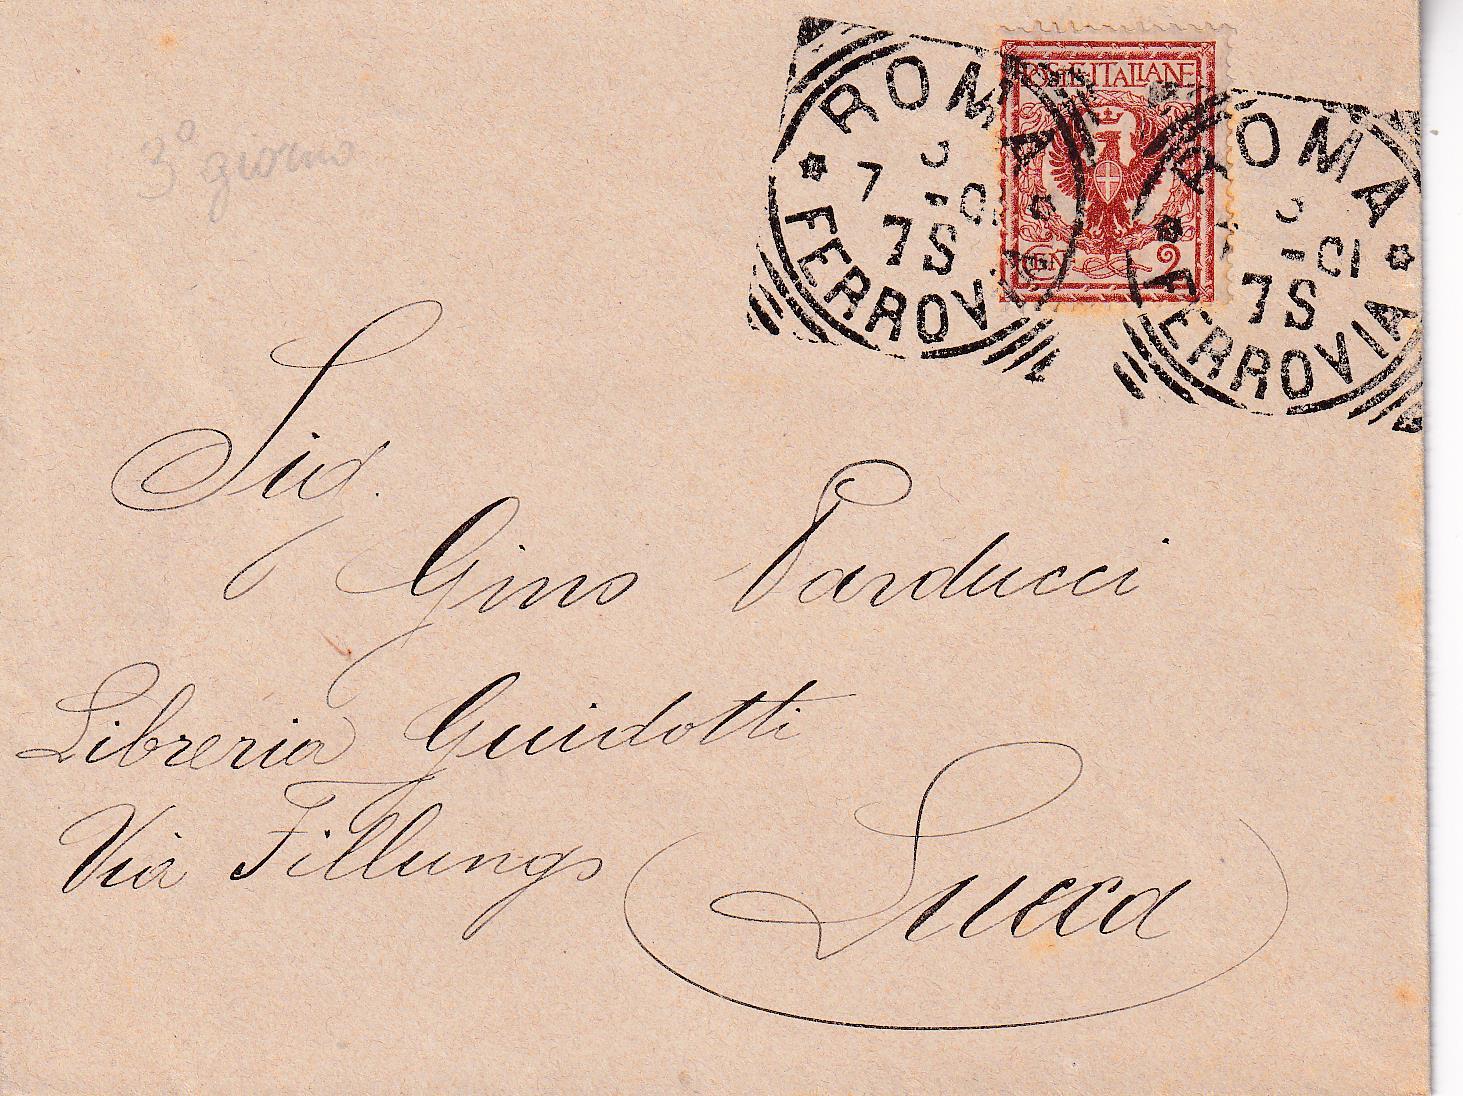 ROMA
3
7 - 01
7S
FERROVIA
POSTE ITALIANE
CEN 2
ROMA
3
- 01
7S
FERROVIA
3° giorno
Sig.
Gino Parducci
Libreria Guidotti
Via Fillungo
Lucca